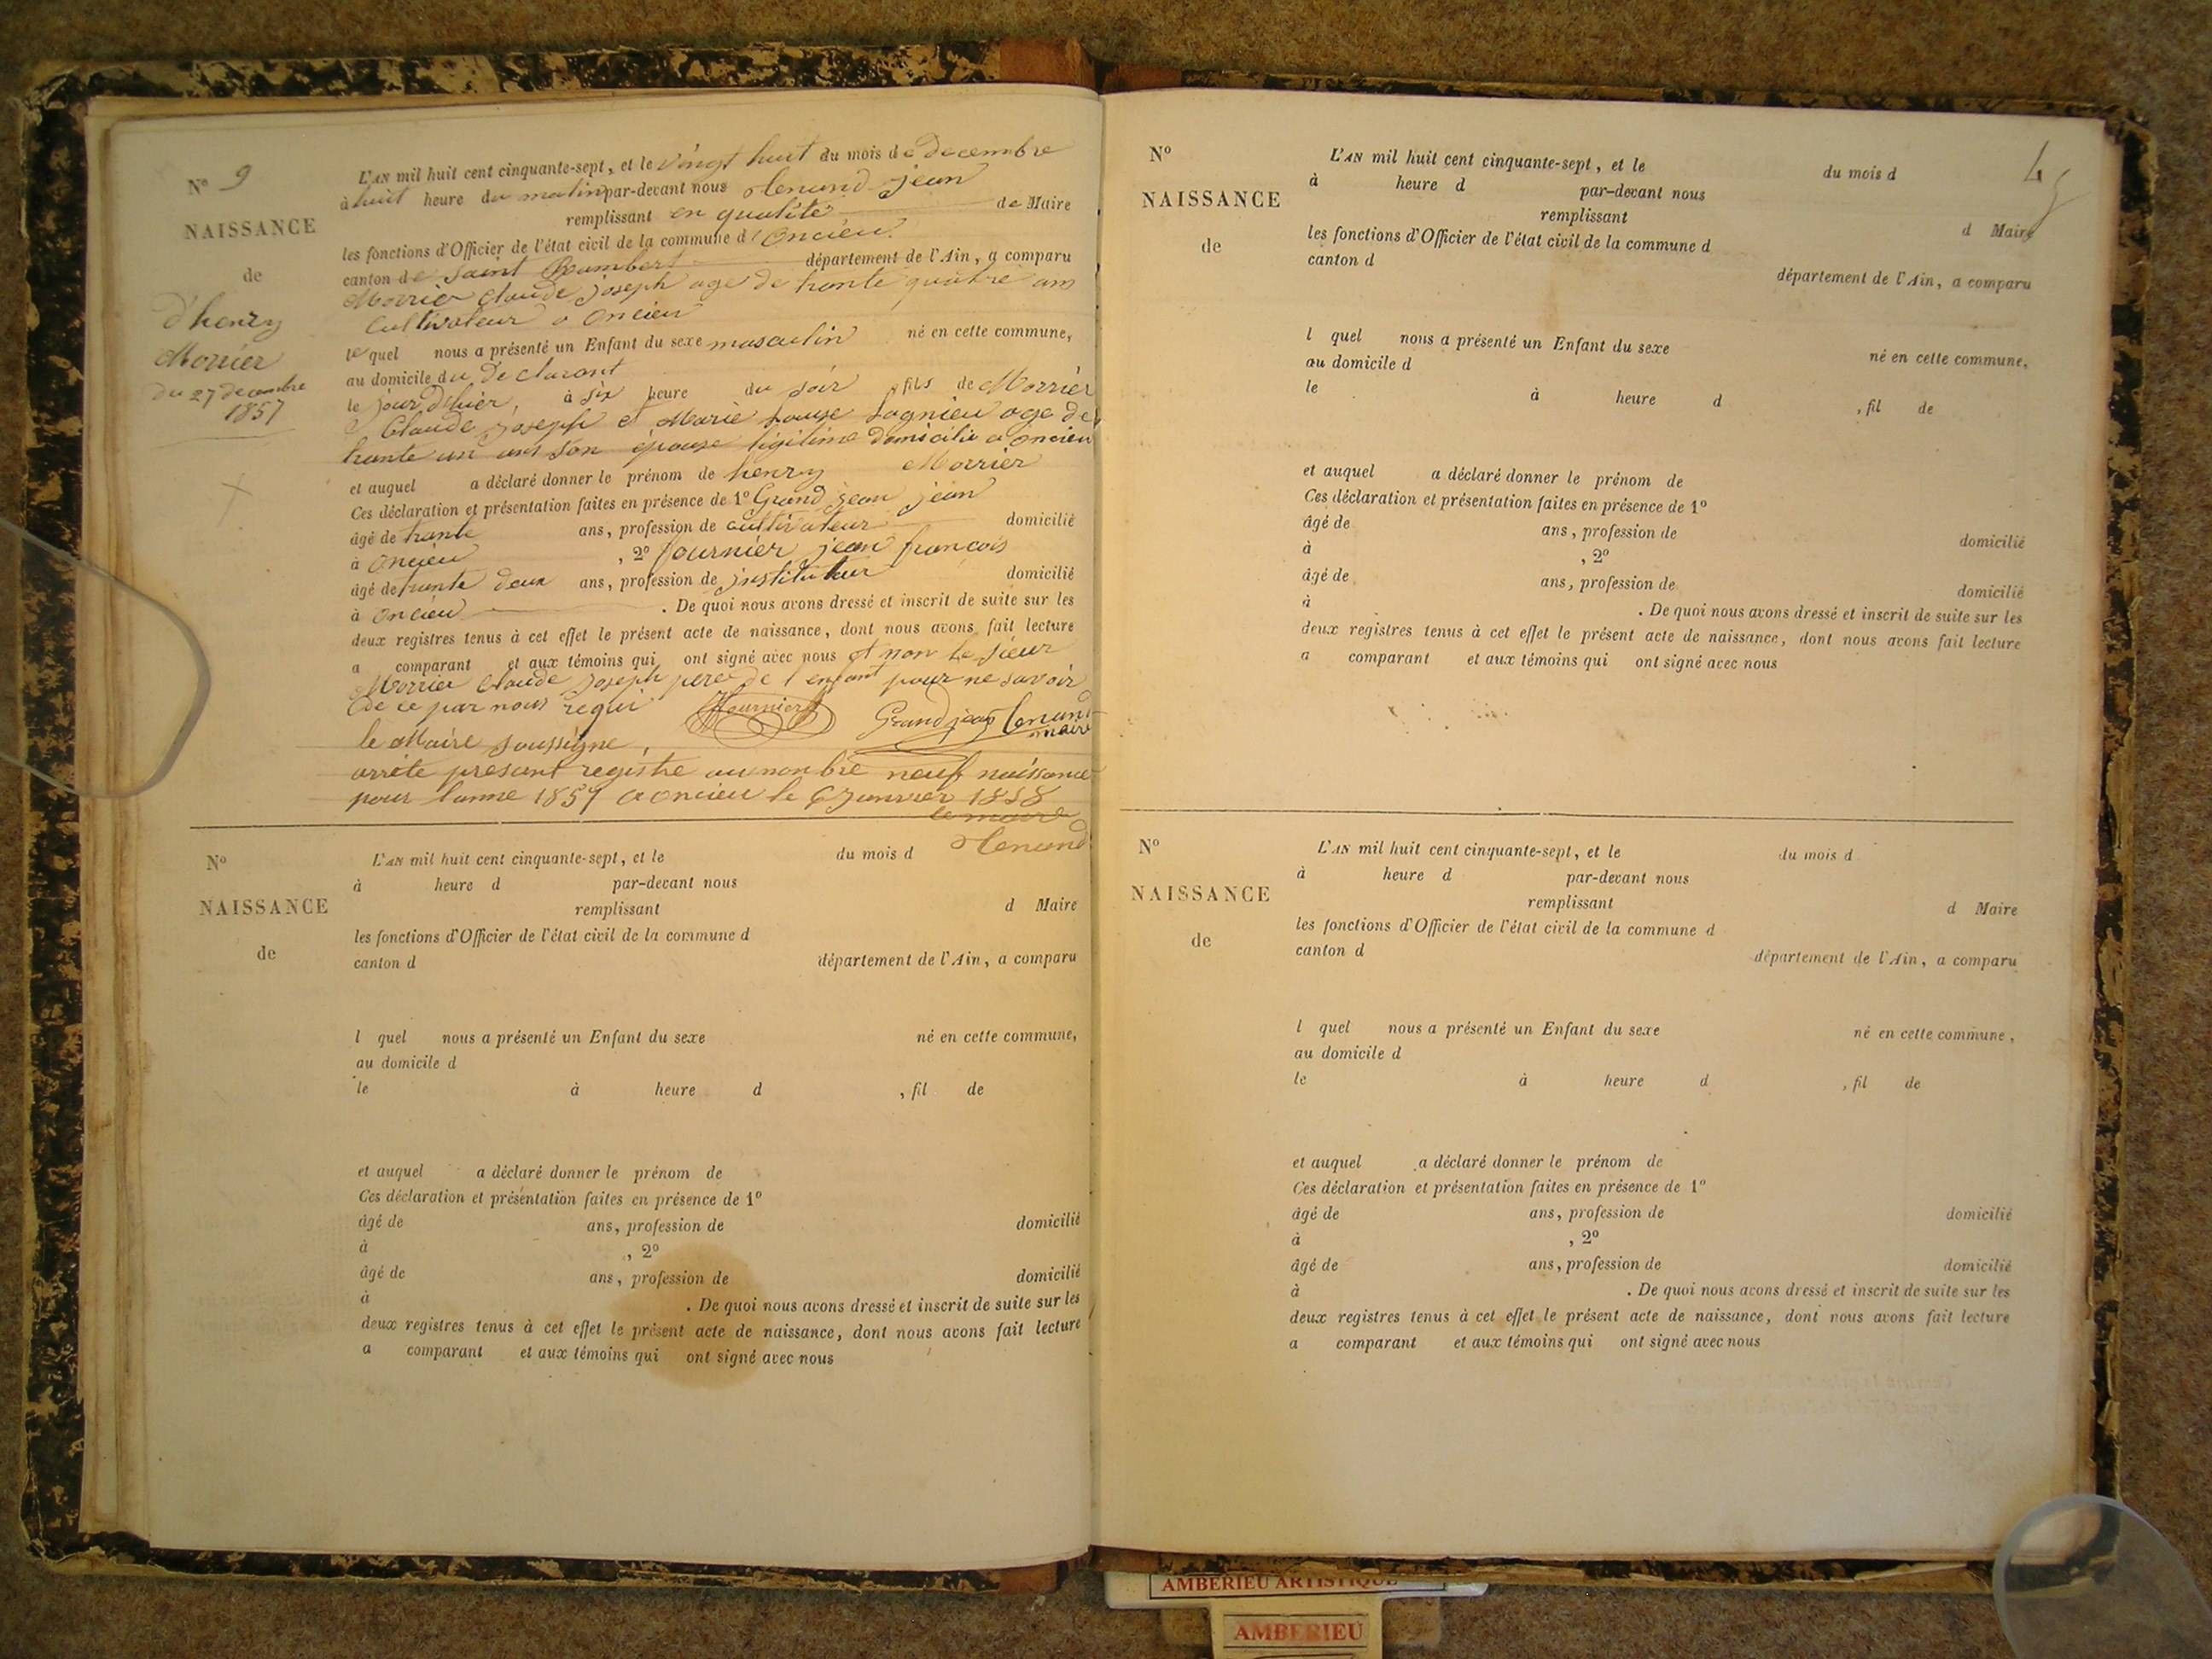 N° 9
NAISSANCE
de
d'henry
Morrier
du 27 decembre
1857
L'AN mil huit cent cinquante-sept, et le vingt huit du mois de decembre
à huit heure du matin par-devant nous jean
remplissant en qualité de Maire
les fonctions d'Officier de l'état civil de la commune d'Oncieu
canton de Saint Rambert département de l'Ain, a comparu
Morrier Claude joseph age de trante quatre ans
Cultivateur a Oncieu
le quel nous a présenté un Enfant du sexe masculin né en cette commune,
au domicile du Declarant
le jour Dhier, à six heure du soir, fils de Morrier
Claude joseph et Marie Louise Lagnieu age de
trante un ans son épouse ligitime domicilie a oncieu
et auquel a déclaré donner le prénom de henry Morrier
Ces déclaration et présentation faites en présence de 1° Grand jean jean
âgé de trante ans, profession de cultivateur domicilié
à oncieu, 2° fournier jean francois
âgé de trante deux ans, profession de instituteur domicilié
à oncieu. De quoi nous avons dressé et inscrit de suite sur les
deux registres tenus à cet effet le présent acte de naissance, dont nous avons fait lecture
a comparant et aux témoins qui ont signé avec nous et non le sieur
Morrier Claude joseph pere de l'enfant pour ne savoir
de ce par nous requi Fournier Grand jean
maire
le Maire soussigne,
arrete present registre au nombre neuf naissance
pour lanne 1857 a oncieu le 6 Janvier 1858
le maire
N°
NAISSANCE
de
L'AN mil huit cent cinquante-sept, et le du mois d
à heure d par-devant nous
remplissant d Maire
les fonctions d'Officier de l'état civil de la commune d
canton d département de l'Ain, a comparu
l quel nous a présenté un Enfant du sexe né en cette commune,
au domicile d
le à heure d , fil de
et auquel a déclaré donner le prénom de
Ces déclaration et présentation faites en présence de 1°
âgé de ans, profession de domicilié
à , 2°
âgé de ans, profession de domicilié
à . De quoi nous avons dressé et inscrit de suite sur les
deux registres tenus à cet effet le présent acte de naissance, dont nous avons fait lecture
a comparant et aux témoins qui ont signé avec nous
N°
NAISSANCE
de
L'AN mil huit cent cinquante-sept, et le du mois d
à heure d par-devant nous
remplissant d Maire
les fonctions d'Officier de l'état civil de la commune d
canton d département de l'Ain, a comparu
l quel nous a présenté un Enfant du sexe né en cette commune,
au domicile d
le à heure d , fil de
et auquel a déclaré donner le prénom de
Ces déclaration et présentation faites en présence de 1°
âgé de ans, profession de domicilié
à , 2°
âgé de ans, profession de domicilié
à . De quoi nous avons dressé et inscrit de suite sur les
deux registres tenus à cet effet le présent acte de naissance, dont nous avons fait lecture
a comparant et aux témoins qui ont signé avec nous
N°
NAISSANCE
de
L'AN mil huit cent cinquante-sept, et le du mois d
à heure d par-devant nous
remplissant d Maire
les fonctions d'Officier de l'état civil de la commune d
canton d département de l'Ain, a comparu
l quel nous a présenté un Enfant du sexe né en cette commune,
au domicile d
le à heure d , fil de
et auquel a déclaré donner le prénom de
Ces déclaration et présentation faites en présence de 1°
âgé de ans, profession de domicilié
à , 2°
âgé de ans, profession de domicilié
à . De quoi nous avons dressé et inscrit de suite sur les
deux registres tenus à cet effet le présent acte de naissance, dont nous avons fait lecture
a comparant et aux témoins qui ont signé avec nous
AMBERIEU ARTISTIQUE
AMBERIEU